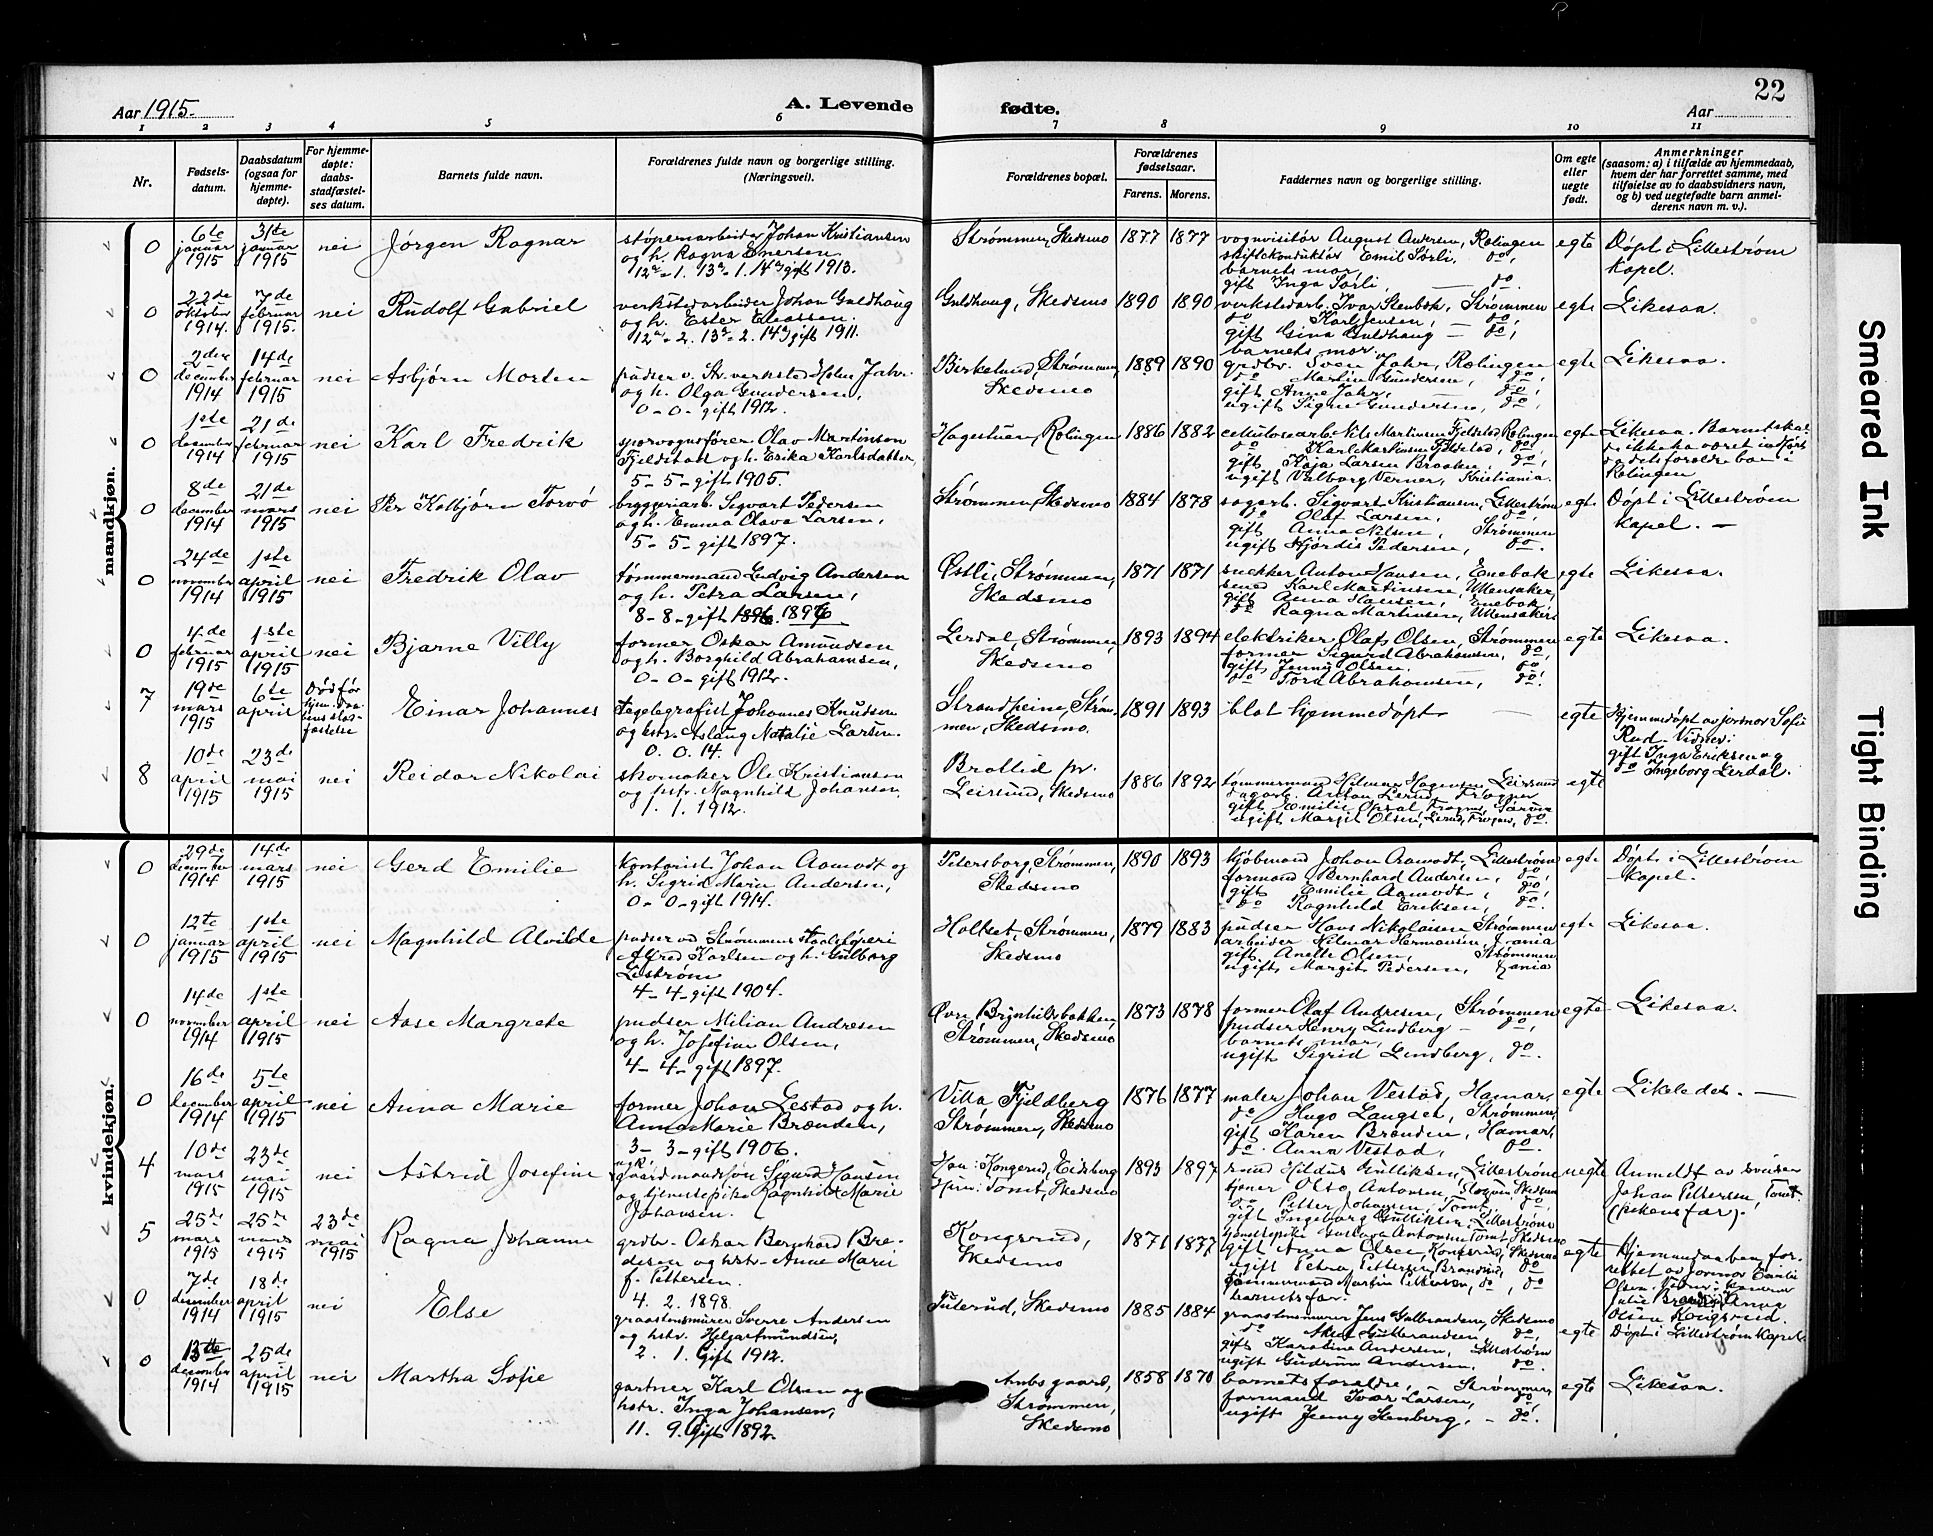 22
Aar 1915.
A. Levende
fødte.
Aar
1 2 3 4 5 6 7 8 9 10 11
Nr.
Fødsels-
datum.
Daabsdatum
(ogsaa for
hjemme-
døpte).
For hjemme-
døpte:
daabs-
stadfæstel-
ses datum.
Barnets fulde navn.
Forældrenes fulde navn og borgerlige stilling.
(Næringsvei).
Forældrenes bopæl.
Forældrenes
fødselsaar.
Farens. Morens.
Faddernes navn og borgerlige stilling.
Om egte
eller
uegte
født.
Anmerkninger
(saasom: a) i tilfælde av hjemmedaab,
hvem der har forrettet samme, med
tilføielse av to daabsvidners navn,
og b) ved uegtefødte barn anmel-
derens navn m. v.).
mandkjøn.
0
6te januar 1915
31te januar 1915
nei
Jørgen Ragnar
støperiarbeider Johan Kristiansen
og h. Ragna Enersen.
12a - 1. 13a - 1. 14a gift 1913.
Strømmen, Skedsmo
1877 1877
vognvisitør August Andersen, Rælingen
skiftekonduktør Emil Sørli, do,
barnets mor,
gift Inga Sørli, do.
egte
Døpt i Lillestrøm
kapel.
0
22de oktober 1914.
7de februar 1915.
nei
Rudolf Gabriel
verkstedarbeider Johan Guldhaug
og h. Ester Eliassen.
12a - 2. 13a - 2. 14a gift 1911.
Guldhaug, Skedsmo
1890 1890
verkstedarb. Ivar Stenbok, Strømmen
do Karl Jensen, do,
gift Gina Guldhaug — do,
barnets mor.
egte
Likesaa.
0
2den december 1914
14de februar 1915
nei
Asbjørn Morten
pudser v. Str. verksted Jahr
og h. Olga Gundersen,
0-0-gift 1912.
Birkelund, Strømmen,
Skedsmo
1889 1890
grdbr. Sven Jahr, Rælingen
do Martin Gundersen, do,
gift Anne Jahr, do,
ugift Signe Gundersen, do,
egte
Likesaa.
0
1ste december 1914
21de februar 1915
nei
Karl Fredrik
sporvognsfører Olav Martinson
Fjeldstad og h. Erika Karlsdatter,
5-5-gift 1905.
Hagestuen, Rælingen
1886 1882
cellulosearb. Nils Martinsen Fjeldstad, Rælingen
do Karl Martinsen Fjeldstad, do,
gift Kaja Larsen Braaten, do,
ugift Valborg Verner, Kristiania.
egte
Likesaa.
Rælingen
0
8de december 1914
21de mars 1915
nei
Per Kolbjørn Torvö
bryggeriarb. Sigvart Pedersen
og h. Emma Olava Larsen,
5-5-gift 1897.
Strømmen, Skedsmo
1884 1878
sagarb. Sigvart Kristiansen, Lillestrøm
do Olaf Larsen, do,
gift Anna Nilsen, Strømmen
ugift Hjørdis Pedersen, do.
egte
Døpt i Lillestrøm
kapel. —
0
24de november 1914
1ste april 1915
nei
Fredrik Olav
tømmermand Ludvig Andersen
og h. Petra Larsen,
8-8-gift 1896. 1896
Østli, Strømmen,
Skedsmo
1871 1871
snekker Anton Hansen, Enebak
smed Karl Martinsen, Ullensaker,
gift Anna Hansen, Enebak
do Ragna Martinsen, Ullensaker
egte
Likesaa.
0
4de februar 1915
1ste april 1915
nei
Bjarne Villy
former Oskar Amundsen
og h. Borghild Abrahamsen,
0-0-gift 1912.
Lerdal, Strømmen,
Skedsmo
1893 1894
elektriker Olaf Olsen, Strømmen
former Sigurd Abrahamsen, do,
gift Jenny Olsen. do
do Tora Abrahamsen, do.
egte
Likesaa.
7
19de mars 1915
6te april
Død før
Einar Johannes
telegrafist Johannes Knudsen
og hstr. Aslaug Natalie Larsen.
0. 0. 14.
Strandheim, Strøm-
men, Skedsmo.
1891 1893
blot hjemmedøpt
egte
Hjemmedøpt av jordmor Sofie
Rud. Vidner:
gift Inga Eriksen og
do Ingeborg Lerdal.
8
10de april 1915
23de mai 1915
nei
Reidar Nikolai
skomaker Ole Kristiansen
og hstr. Magnhild Johansen
1. 1. 1912.
Brattlid pr.
Leirsund, Skedsmo
1886 1892
tømmermand Hilmar Hagensen Leirsund
dagarb. Anton Lerud Frogner
gift Emilie Opsal, Frogner, Sørum
ugift Margit Olsen, Lerud, Frogner, do.
egte
kvindekjøn.
0
29de december 1914
14de mars 1915
nei
Gerd Emilie
kontorist Johan Aamodt og
h. Sigrid Marie Andersen,
0-0-gift 1914.
Petersborg, Strømmen,
Skedsmo
1890 1893
kjøbmand Johan Aamodt, Lillestrøm
formand Bernhard Andersen, do,
gift Emilie Aamodt, do,
do Ragnhild Eriksen, do.
egte
Døpt i Lillestrøm
kapel.
0
12te januar 1915
1ste april 1915
nei
Magnhild Alvilde
pudser ved Strømmens Staalstøperi
Alfred Karlsen og h. Gulborg
Listrøm
4-4-gift 1904.
Holbæt, Strømmen,
Skedsmo
1879 1883
pudser Hans Nikolaisen Strømmen
arbeider Hilmar Hermansen, Xania
gift Anette Olsen, Strømmen
ugift Margit Pedersen, Xania
egte
Likesaa.
0
14de november 1914
1ste april 1915
nei
Aase Margrete
pudser Milian Andresen
og h. Josefine Olsen,
4-4-gift 1897.
Øvre Brynhildsbakken,
Strømmen, Skedsmo
1873 1878
former Olaf Andresen, Strømmen
pudser Henry Lindberg - do,
barnets mor,
ugift Sigrid Lindberg, do.
egte
Likesaa.
0
16de december 1914
5te april 1915
nei
Anna Marie
former Johan Lestad og h.
Anna Marie Brænden,
3-3-gift 1906.
Villa Fjeldberg
Strømmen, Skedsmo
1876 1877
maler Johan Vestad, Hamar,
do Hugo Langset, Strømmen,
gift Karen Brænden, Hamar,
do. Anna Vestad, do.
egte
Likeledes. —
4
10de mars 1915
23de mai 1915
nei
Astrid Josefine
ugk.
gaardmandssøn Sigurd Hansen
og tjenestepike Ragnhild Marie
Johansen.
Han: Kongerud, Eidsberg
Hun: Tomt, Skedsmo
1893 1897
smed Hildus Gulliksen, Lillestrøm
tjener Olto Antonsen, Skedsmo
do. Petter Johansen, Tomt, do,
gift Ingeborg Gulliksen, Lillestrøm
tjenestepike Gustava Antonsen Tomt, Skedsmo
uegte
Anmeldt av svensen
Johan Pettersen, Tomt.
(pikens far).
5
25de mars 1915
25de mars 1915
23de mai 1915
Ragna Johanne
grdbr. Oskar Bernhard Bre-
desen og hstr. Anne Marie
f. Pettersen.
4. 2. 1898.
Kongsrud,
Skedsmo
1871 1877
gift Anna Olsen, Kongsrud, Skedsmo
ugift Petra Pettersen, Brandrud, do
tømmermand Martin Pettersen, do, do
barnets far.
egte
Hjemmedaaben for-
rettet av jormor Emilie
Olsen. Vidner:
Julie Brandrud, Anna
Olsen Kongsrud.
0
7de december 1914
18de april 1915
nei
Else
graastensmurer Sverre Andersen
og hstr. Helga Amundsen,
2. 1. Gift 1912.
Tuterud, Skedsmo
1885 1884
graastensmurer Jens Gulbrandsen, Skedsmo
do Aksel Gulbrandsen do,
gift Karoline Andersen, Lillestrøm
ugift Gudrun Andersen, do.
egte
Døpt i Lillestrøm kapel.
0
13te december 1914
25de april 1915
nei
Martha Sofie
gartner Karl Olsen og
hstr. Inga Johansen,
11. 9. Gift 1892.
gaard,
Strømmen,
Skedsmo
1858 1870
barnets forældre, Strømmen
formand Ivar Larsen, do,
ugift Jenny Stenberg, - do.
egte
Likesaa.
Smeared Ink
Tight Binding